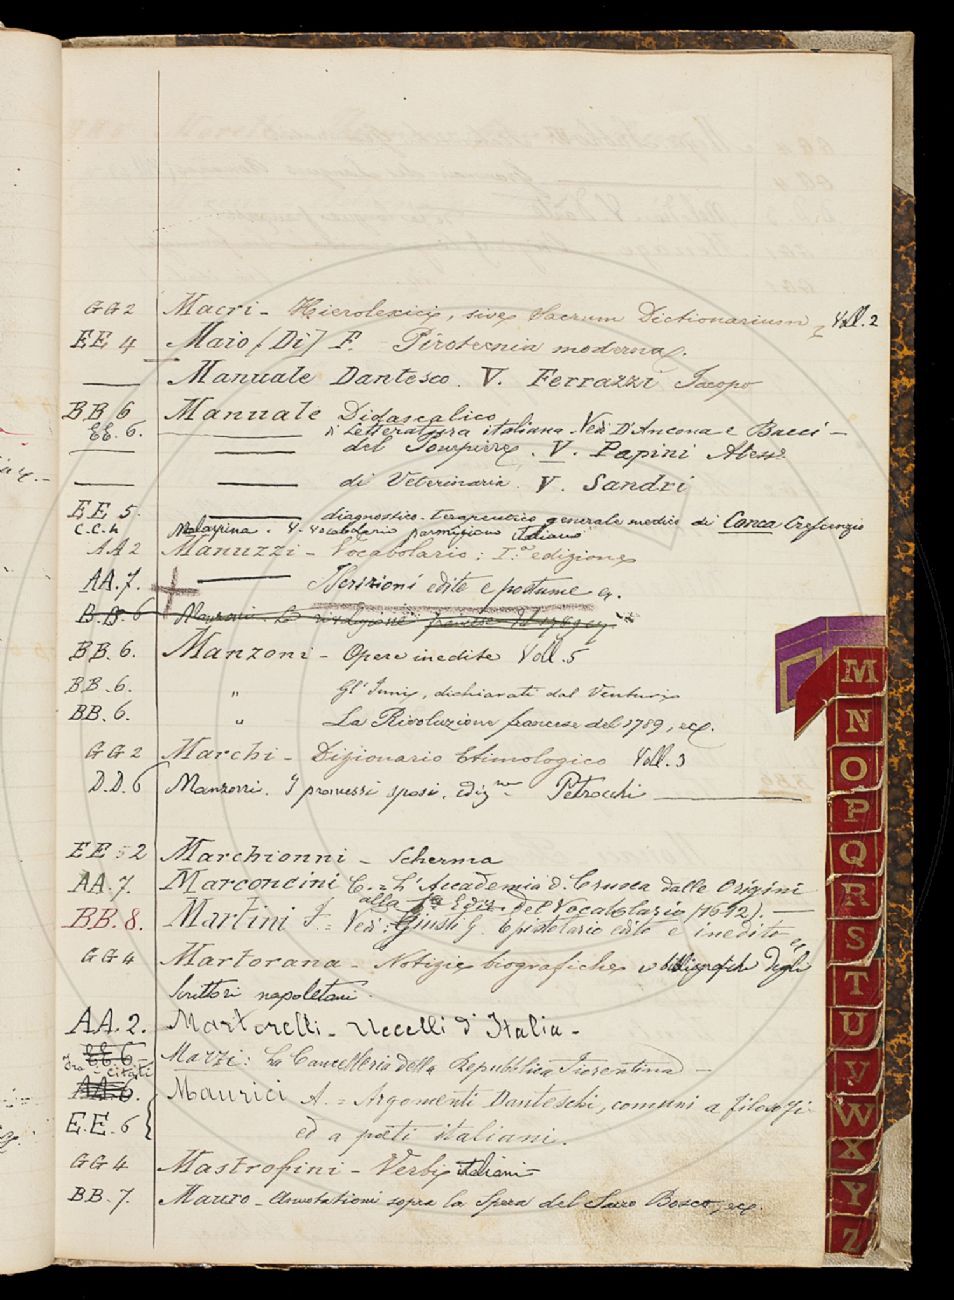 GG2 Macri - Hierolexici, sive Sacrum Dictionarium Voll. 2
EE 4 Maio (Di) F. - Pirotecnia moderna.
—— Manuale Dantesco. V. Ferrazzi Jacopo
BB 6 Manuale Didascalico
EE. 6. —— di Letteratura italiana. Vedi D'Ancona e Bacci -
—— —— del V. Papini Aless
—— —— di Veterinaria. V. Sandri
EE 5 —— diagnostico-terapeutico generale medico di Conca Crescenzio
C.C.4 Malaspina. V. Vocabolario parmigiano italiano
AA2 Manuzzi - Vocabolario: I.a edizione
AA.7. —— Iscrizioni edite e postume
B.B. 6 Manzoni - La rivoluzione francese del 1789
BB. 6. Manzoni - Opere inedite Voll. 5
BB. 6. " Gl'Inni, dichiarati dal Venturi
BB. 6. " La Rivoluzione francese del 1789, ecc.
GG2 Marchi - Dizionario Etimologico Voll. 2
D.D. 6 Manzoni. I promessi sposi. ediz.ne Petrocchi ——
EE 2 Marchionni - Scherma
AA. 7. Marconcini C. = L'Accademia d. Crusca dalle Origini
alla 1a Ediz. del Vocabolario (1612). —
BB. 8. Martini F. = Vedi: Giusti G. Epistolario edito e inedito
GG4 Martorana - Notizie biografiche e bibliografiche degli
Scrittori napoletani.
AA. 2. Martorelli - Uccelli d'Italia -
EE 6 Marzi: La Cancelleria della Repubblica Fiorentina —
AA. 6. Maurici A. = Argomenti Danteschi, comuni a filosofi
E.E. 6 ed a poeti italiani.
GG4 Mastrofini - Verbi italiani -
BB. 7 Mauro - Annotationi sopra la Spera del Sacro Bosco, ecc.
M
N
O
P
Q
R
S
T
U
V
W
X
Y
Z